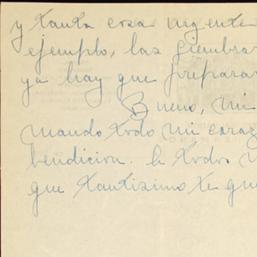 y tanta cosa urgente
ejemplo, las siembra
ya hay que prepara
Bueno, mi
mando todo mi coraz
bendicion. a todos
que tantisimo te que